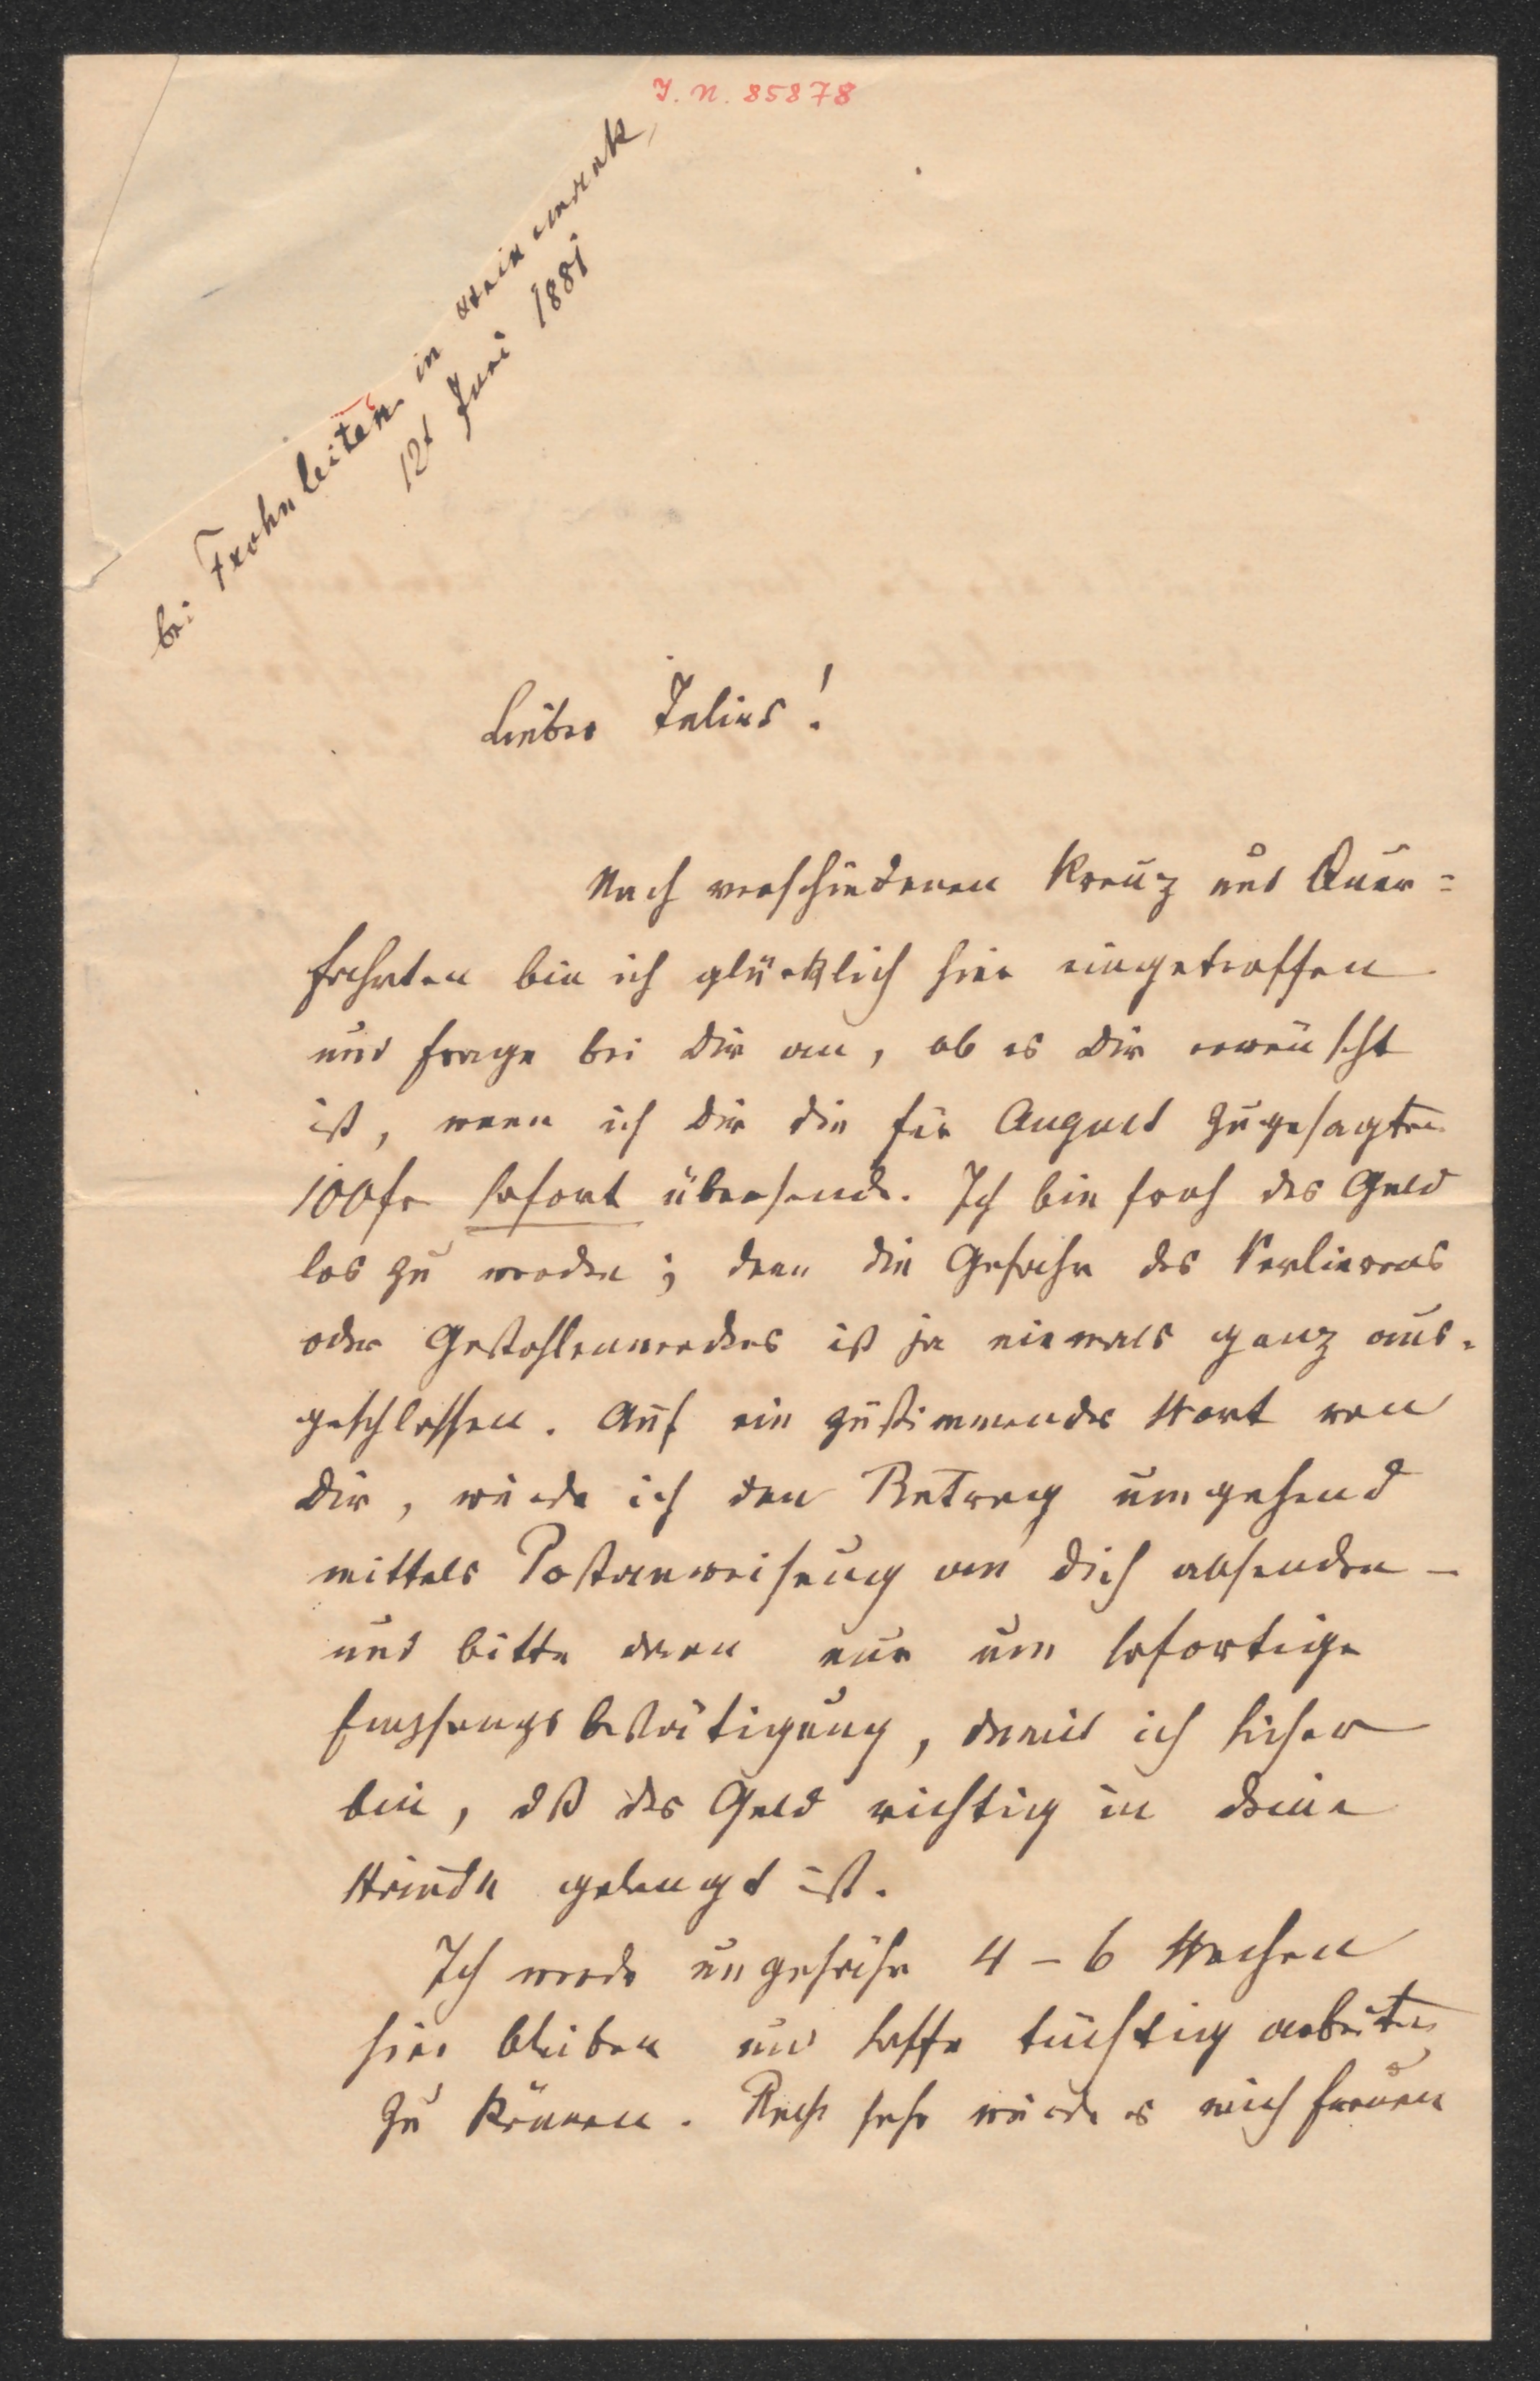 I. N. 85878
bei Frohnleiten in Steiermark,
12t Juni 1881
Lieber Julius!
Nach verschiedenen Kreuz und Quer=
fahrten bin ich glücklich hier eingetroffen
und frage bei Dir an, ob es Dir erwünscht
ist, wenn ich Dir die für August zugesagten
100 fr sofort übersende. Ich bin froh das Geld
los zu werden; denn die Gefahr des Verlierens
oder Gestohlenwerdens ist ja niemals ganz aus-
geschlossen. Auf ein zustimmendes Wort von
Dir, würde ich den Betrag umgehend
mittels Postanweisung an Dich absenden –
und bitte dann nur um sofortige
Empfangsbestätigung, damit ich sicher
bin, dß das Geld richtig in Deine
Hände gelangt ist.
Ich werde ungefähr 4 – 6 Wochen
hier bleiben und hoffe tüchtig arbeiten
zu können. Recht sehr würde es mich freuen